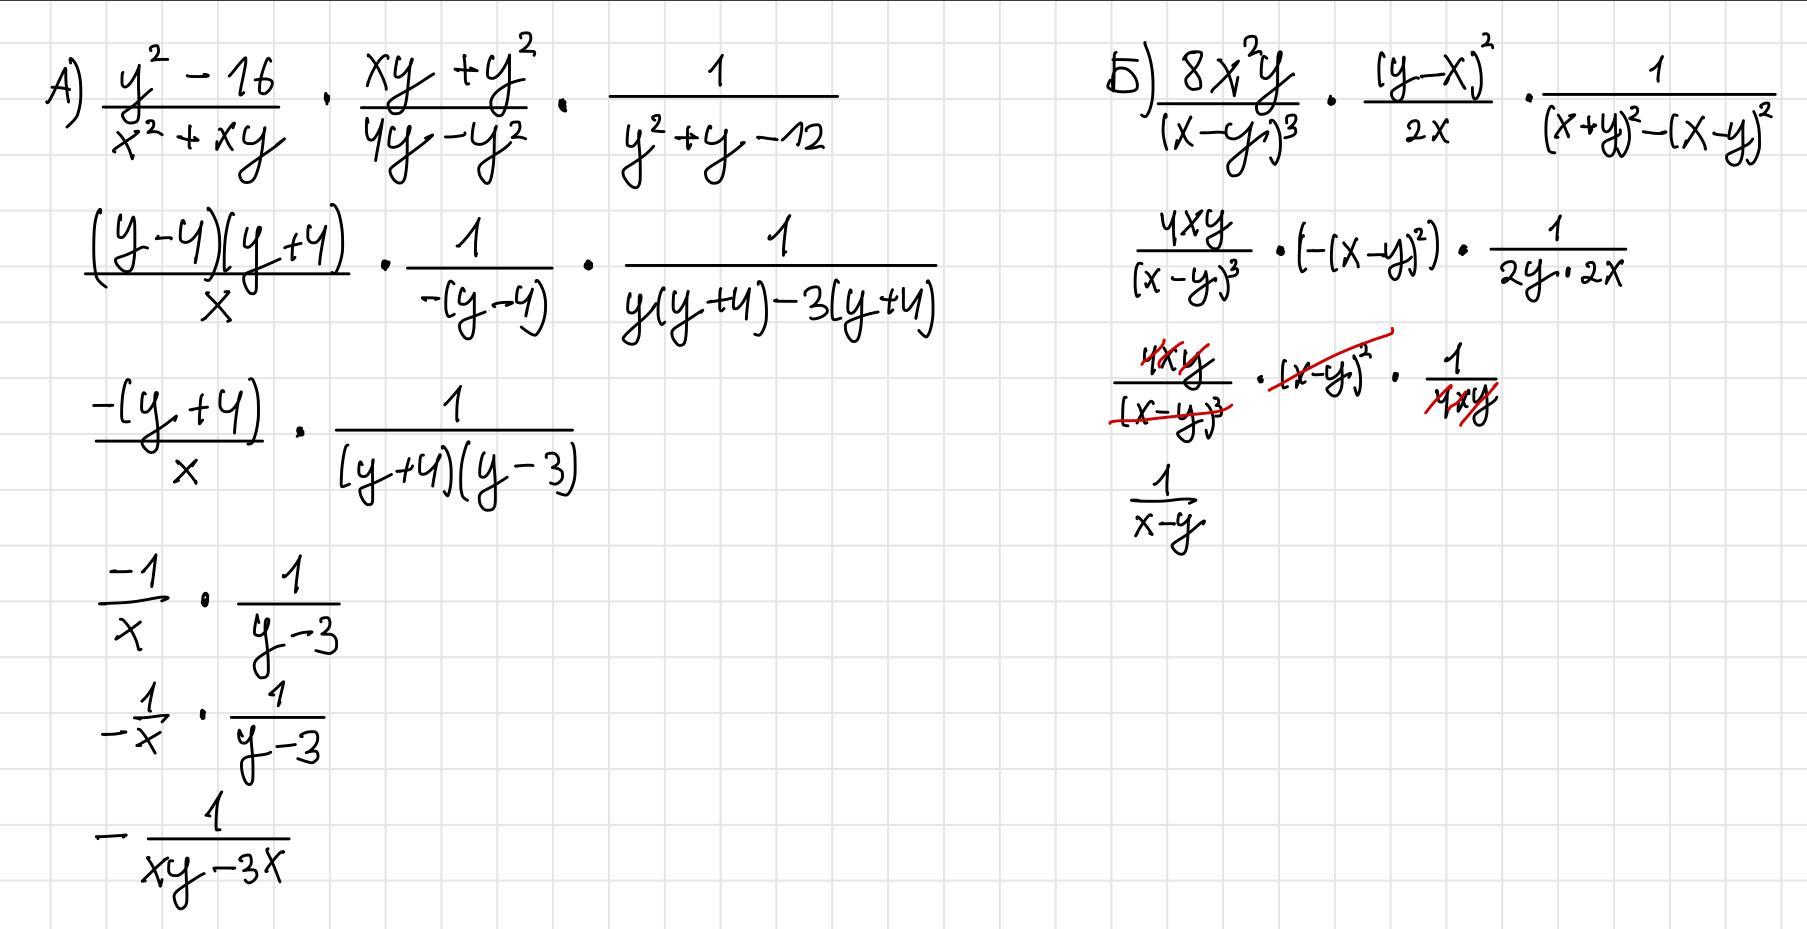 А) (y² - 16)/(x² + xy) · (xy + y²)/(4y - y²) · 1/(y² + y - 12)
((y - 4)(y + 4))/x · 1/(-(y - 4)) · 1/(y(y + 4) - 3(y + 4))
(-(y + 4))/x · 1/((y + 4)(y - 3))
(-1)/x · 1/(y - 3)
- 1/x · 1/(y - 3)
- 1/(xy - 3x)
Б) (8x²y)/((x - y)³) · ((y - x)²)/(2x) · 1/((x + y)² - (x - y)²)
(4xy)/((x - y)³) · (-(x - y)²) · 1/(2y · 2x)
(4xy)/((x - y)³) · (x - y)² · 1/(4xy)
1/(x - y)